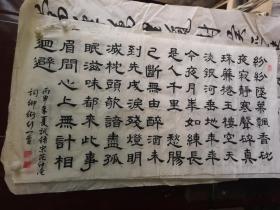 紛紛墜葉飄香砌
夜寂靜寒聲碎真
珠簾卷玉樓空天
淡銀河垂地年年
今夜月華如練長
是人千里愁腸
已斷無由醉酒未
到先成淚殘燈明
滅枕頭欹諳盡孤
眠滋味都來此事
眉間心上無計相
迴避
丙申夏試錄宋范仲淹
詞御街行一首